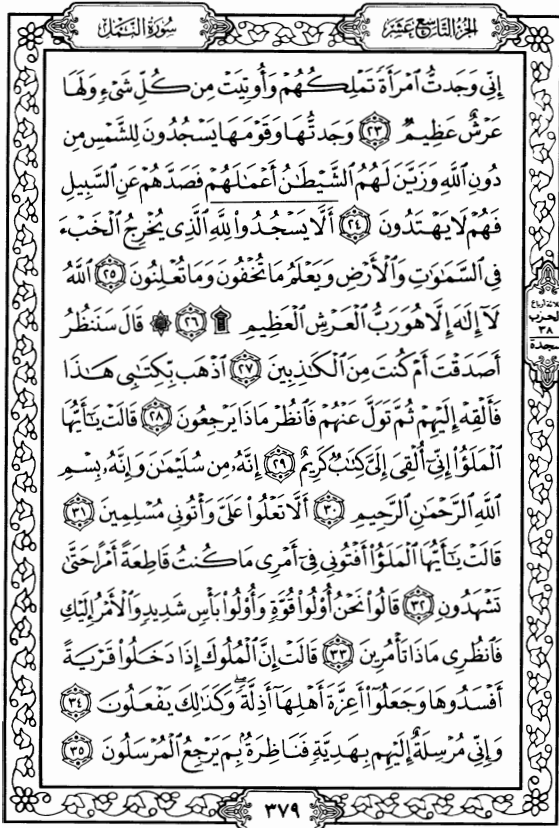 الجُزْءُ التَّاسِعَ عَشَرَ
سُورَةُ النَّمْلِ
إِنِّي وَجَدتُّ ٱمْرَأَةً تَمْلِكُهُمْ وَأُوتِيَتْ مِن كُلِّ شَيْءٍ وَلَهَا
عَرْشٌ عَظِيمٌ ٢٣ وَجَدتُّهَا وَقَوْمَهَا يَسْجُدُونَ لِلشَّمْسِ مِن
دُونِ ٱللَّهِ وَزَيَّنَ لَهُمُ ٱلشَّيْطَٰنُ أَعْمَٰلَهُمْ فَصَدَّهُمْ عَنِ ٱلسَّبِيلِ
فَهُمْ لَا يَهْتَدُونَ ٢٤ أَلَّا يَسْجُدُوا۟ لِلَّهِ ٱلَّذِي يُخْرِجُ ٱلْخَبْءَ
فِي ٱلسَّمَٰوَٰتِ وَٱلْأَرْضِ وَيَعْلَمُ مَا تُخْفُونَ وَمَا تُعْلِنُونَ ٢٥ ٱللَّهُ
لَآ إِلَٰهَ إِلَّا هُوَ رَبُّ ٱلْعَرْشِ ٱلْعَظِيمِ ۩ ٢٦ ۞ قَالَ سَنَنظُرُ
أَصَدَقْتَ أَمْ كُنتَ مِنَ ٱلْكَٰذِبِينَ ٢٧ ٱذْهَب بِّكِتَٰبِي هَٰذَا
فَأَلْقِهْ إِلَيْهِمْ ثُمَّ تَوَلَّ عَنْهُمْ فَٱنظُرْ مَاذَا يَرْجِعُونَ ٢٨ قَالَتْ يَٰٓأَيُّهَا
ٱلْمَلَؤُا۟ إِنِّيٓ أُلْقِيَ إِلَيَّ كِتَٰبٌ كَرِيمٌ ٢٩ إِنَّهُۥ مِن سُلَيْمَٰنَ وَإِنَّهُۥ بِسْمِ
ٱللَّهِ ٱلرَّحْمَٰنِ ٱلرَّحِيمِ ٣٠ أَلَّا تَعْلُوا۟ عَلَيَّ وَأْتُونِي مُسْلِمِينَ ٣١
قَالَتْ يَٰٓأَيُّهَا ٱلْمَلَؤُا۟ أَفْتُونِي فِيٓ أَمْرِي مَا كُنتُ قَاطِعَةً أَمْرًا حَتَّىٰ
تَشْهَدُونِ ٣٢ قَالُوا۟ نَحْنُ أُو۟لُوا۟ قُوَّةٍ وَأُو۟لُوا۟ بَأْسٍ شَدِيدٍ وَٱلْأَمْرُ إِلَيْكِ
فَٱنظُرِي مَاذَا تَأْمُرِينَ ٣٣ قَالَتْ إِنَّ ٱلْمُلُوكَ إِذَا دَخَلُوا۟ قَرْيَةً
أَفْسَدُوهَا وَجَعَلُوٓا۟ أَعِزَّةَ أَهْلِهَآ أَذِلَّةً ۖ وَكَذَٰلِكَ يَفْعَلُونَ ٣٤
وَإِنِّي مُرْسِلَةٌ إِلَيْهِم بِهَدِيَّةٍ فَنَاظِرَةٌۢ بِمَ يَرْجِعُ ٱلْمُرْسَلُونَ ٣٥
ثلاثة أرباع
الحزب
٣٨
سجدة
٣٧٩